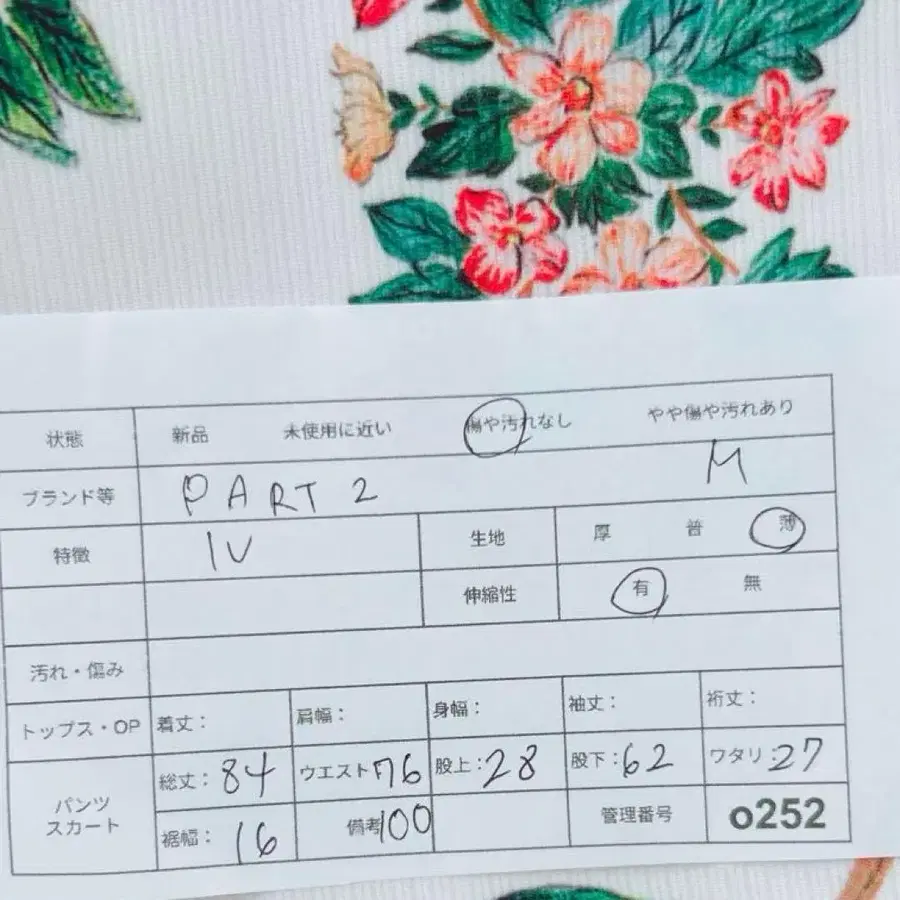 状態 新品 未使用に近い 傷や汚れなし やや傷や汚れあり
ブランド等 PART 2 M
特徴 IV 生地 厚 普 薄
伸縮性 有 無
汚れ・傷み
トップス・OP 着丈: 肩幅: 身幅: 袖丈: 裄丈:
パンツ スカート 総丈:84 ウエスト76 股上:28 股下:62 ワタリ:27
裾幅:16 備考100 管理番号 o252